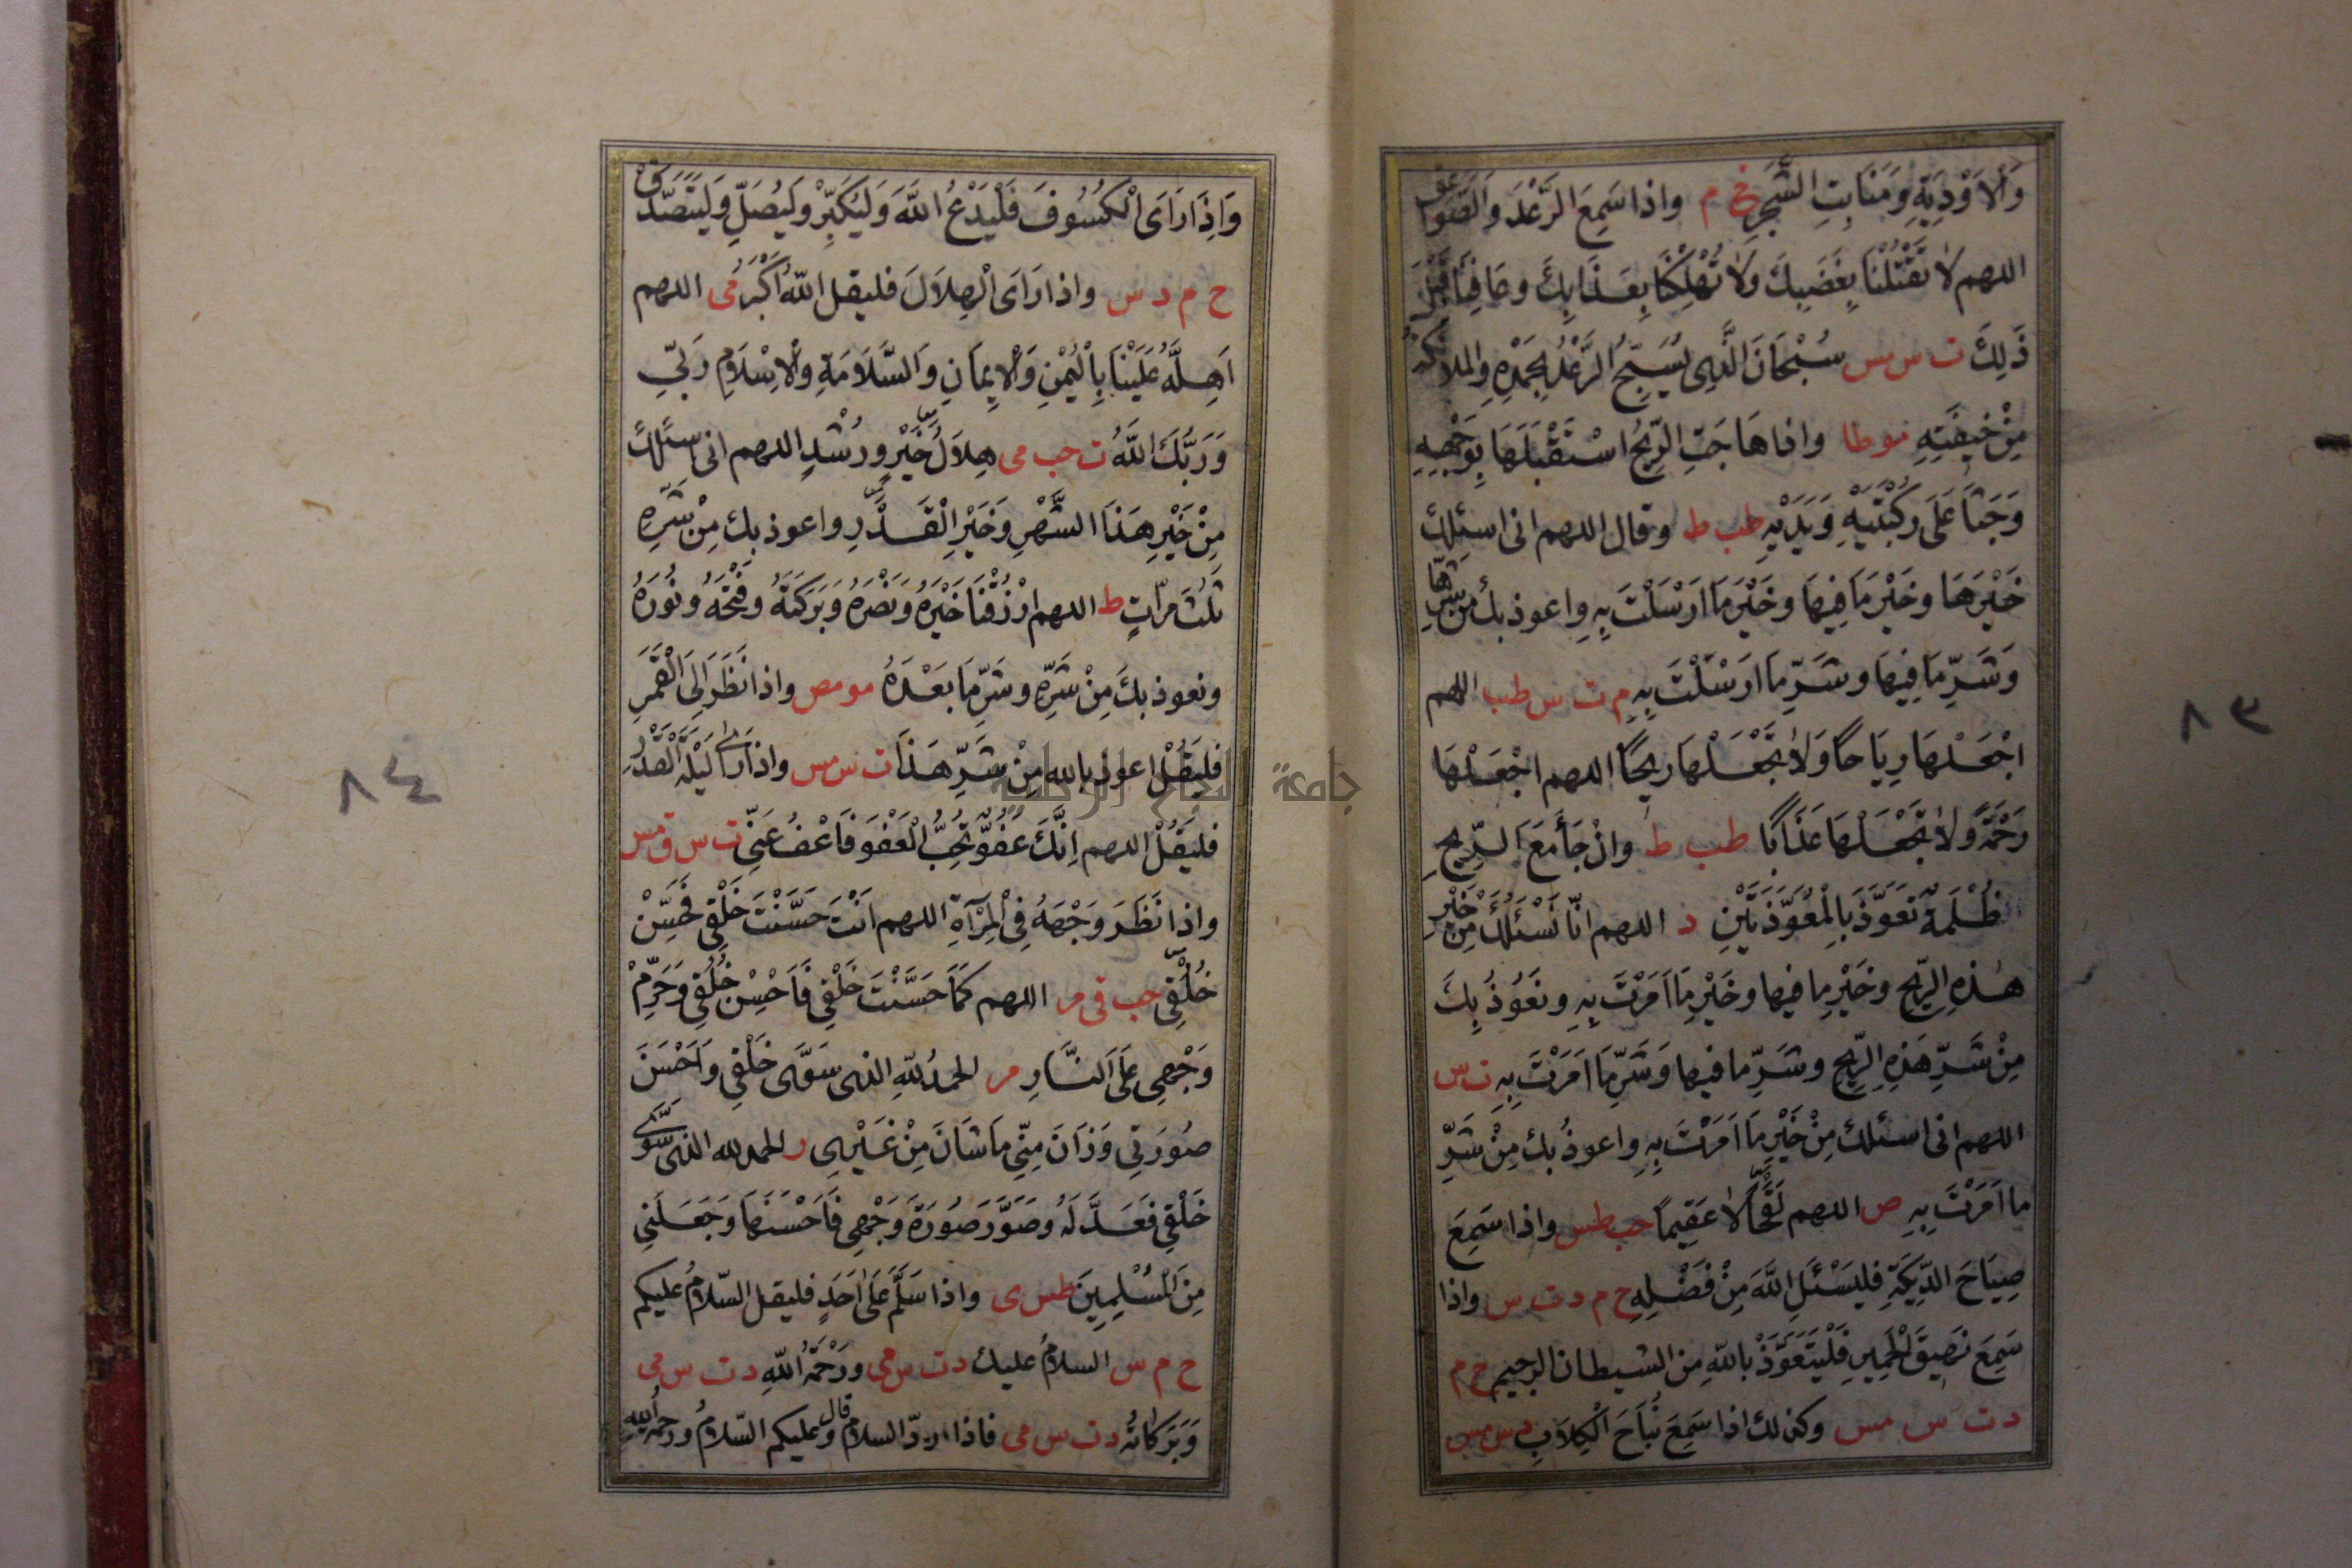 وَالْاَوْدِيَةِ وَمَنَابِتِ الشَّجَرِ خ م واذا سَمِعَ الرَّعْدَ وَالصَّوَاعِقَ
اللهم لَا تَقْتُلْنَا بِغَضَبِكَ وَلَا تُهْلِكْنَا بِعَذَابِكَ وعَافِنَا قَبْلَ
ذَلِكَ ت س مس سُبْحَانَ الَّذِى يُسَبِّحُ الرَّعْدُ بِحَمْدِهِ والملائكة
مِنْ خِيفَتِهِ موطا واذا هَاجَتِ الرِّيحُ اسْتَقْبَلَهَا بِوَجْهِهِ
وَجَثَا عَلَى رُكْبَتَيْهِ وَيَدَيْهِ طب ط وقال اللهم انى اسئلك
خَيْرَهَا وخَيْرَ مَا فِيهَا وخَيْرَ مَا اَرْسَلْتَ بِهِ واعوذ بك مِن شَرِّهَا
وَشَرِّ مَا فِيهَا وشَرِّ مَا ارَسَلْتَ بِهِ م ت س طب اللهم
اجْعَلْهَا رِيَاحًا وَلَا تَجْعَلْهَا رِيحًا اللهم اجْعَلْهَا
رَحْمَةً وَلَا تَجْعَلْهَا عَذَابًا طب ط وانْ جَاءَ مَعَ الرِّيحِ
ظُلْمَةٌ تَعَوَّذَ بِالْمُعَوِّذَتَيْنِ د اللهم انّا نَسْئَلُكَ مِنْ خَيْرِ
هٰذِهِ الرِّيحِ وخَيْرِ ما فيها وخَيْرِ مَا اَمَرْتَ بِهِ ونَعُوْذُ بِكَ
مِنْ شَرِّ هَذِهِ الرِّيحِ وشَرِّ ما فيها وَشَرِّ مَا اَمَرْتَ بِهِ ت س
اللهم انى اسئلك مِنْ خَيْرِ مَا اَمَرْتَ بِهِ واعوذُ بك مِنْ شَرِّ
ما اَمَرْتَ بِهِ ص اللهم لَقَحًا لَا عَقِيمًا حب طس واذا سَمِعَ
صِيَاحَ الدِّيَكَةِ فليَسْئَلِ اللَّهَ مِنْ فَضْلِهِ خ م د ت س واذا
سَمِعَ نَهِيقَ الْحَمِيرِ فَلْيَتَعَوَّذْ بالله من الشيطان الرجيم خ م
د ت س مس وكذلك اذا سَمِعَ نُبَاحَ الْكِلَابِ د س مس
٨٣
وَاِذَا رَاَى الْكُسُوفَ فَلْيَدْعُ اللَّهَ وَلْيُكَبِّرْ وليُصَلِّ وَلْيَتَصَدَّقْ
خ م د س واذا رَاَى الْهِلَالَ فليقل اللهُ اَكْبَرُ مى اللهم
اَهِلَّهُ عَلَيْنَا بِالْيُمْنِ وَالْاِيمَانِ وَالسَّلَامَةِ والْاِسْلَامِ رَبِّي
وَرَبُّكَ اللَّهُ ت حب مى هِلَالُ خَيْرٍ ورُشْدٍ اللهم انى اسئلك
مِنْ خَيْرِ هَذَا الشَّهْرِ وَخَيْرِ الْقَدَرِ واعوذ بك مِنْ شَرِّهِ
ثَلٰثَ مرّاتٍ ط اللهم ارْزُقْنَا خَيْرَهُ وَنَصْرَهُ وَبَرَكَتَهُ وفَتْحَهُ وَنُورَهُ
ونعوذ بكَ مِنْ شَرِّهِ وشَرِّ مَا بَعْدَهُ مو مص واذا نَظَرَ اِلَى الْقَمَرِ
فليَقُلْ اعوذ بالله مِنْ شَرِّ هَذَا ت س مس واذا رَاَى لَيْلَةَ الْقَدْرِ
فليَقُلْ اللهم اِنَّكَ عَفُوٌّ تُحِبُّ الْعَفْوَ فَاعْفُ عَنِّي ت س ق مس
واذا نَظَرَ وَجْهَهُ فِى الْمِرْآةِ اللهم انْتَ حَسَّنْتَ خَلْقِي فَحَسِّنْ
خُلُقِي حب مى مر اللهم كَمَا حَسَّنْتَ خَلْقِي فَاَحْسِنْ خُلُقِي وَحَرِّمْ
وَجْهِي عَلَى النَّارِ مر الحمدُ للهِ الذى سَوَّى خَلْقِي وَاَحْسَنَ
صُورَتِي وَزَانَ مِنِّي مَا شَانَ مِنْ غَيْرِي ر الحمد لله الذى سَوَّى
خَلْقِي فَعَدَّلَهُ وصَوَّرَ صُورَةَ وَجْهِي فَاَحْسَنَهَا وجَعَلَنِي
مِنَ الْمُسْلِمِينَ طس ى واذا سَلَّمَ عَلَى اَحَدٍ فليقل السَّلامُ عليكم
خ م س السلامُ عليك د ت س مى ورَحْمَةُ اللهِ د ت س مى
وَبَرَكَاتُهُ د ت س مى فاذا ردّ السلام قال وعليكم السّلامُ ورحمة الله
٨٤
جامعة النجاح الوطنية